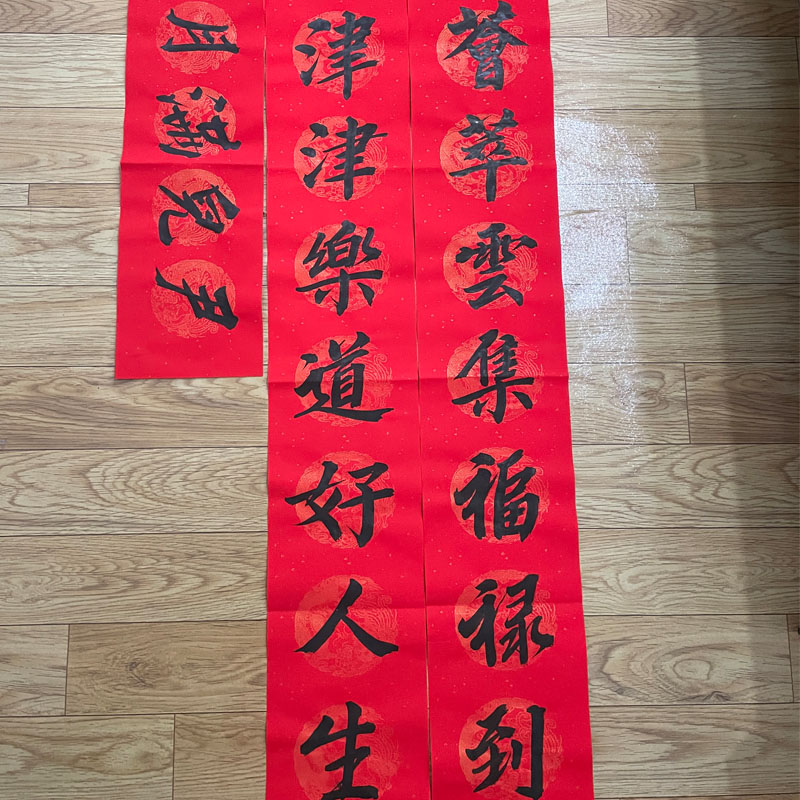 薈萃雲集福禄到
津津樂道好人生
月滿尹